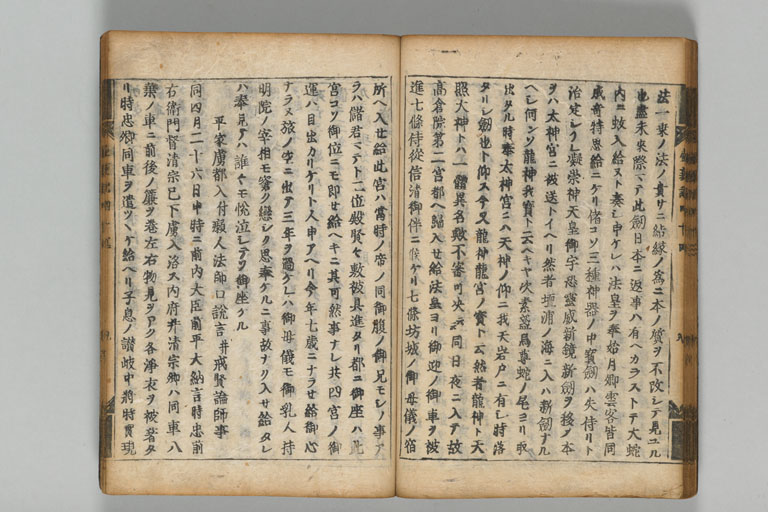 法一乗ノ法ノ貴サニ結縁ノ為ニ本ノ質ヲ不改シテ見ユル
也盡未来際マテ此劔日本ニ返事ハ有ヘカラストテ大蛇
内ニ蚑入給ヌト奏シ申ケレハ法皇ヲ奉始月卿雲客皆同
威奇特思給ニケリ偖コソ三種神器ノ中寶劔ハ失侍リト
治定シケレ凝崇神天皇御宇恐靈威新鏡新劔ヲ移ノ本
ヲハ太神宮ニ被送トイヘリ然者壇浦ノ海ニ入ハ新劔ナル
ヘシ何ソ龍神我寶ト云ヘキヤ次素盞烏尊蛇ノ尾ヨリ取
出タル時奉太神宮ニハ天神ノ仰ニ我天岩戸ニ有シ時落
タリシ劔也ト仰ス今又龍神龍宮ノ寶ト云然者龍神ト天
照大神トハ一體異名歟不審可決云云同日夜ニ入テ故
高倉院第二宮都ヘ歸入セ給法皇ヨリ御迎ノ御車ヲ被
進七條侍従信清御伴ニ候ケリ七條坊城ノ御母儀ノ宿
所ヘ入セ給此宮ハ當時ノ帝ノ同御腹ノ御兄モシノ事ア
ラハ儲君ニトテ二位殿賢ク被具進タリ都ニ御座ハ此
宮コソ御位ニモ即セ給ヘキニ其可然事ナレ共四宮ノ御
運ハ目出カリケリト人申アヘリ今年七歳ニナラセ給御心
ナラヌ旅ノ空ニ出テ三年ヲ過ケレハ御母儀モ御乳人持
明院ノ宰相モ穴ク戀シク思奉ケルニ事故ナリ入セ給タレ
ハ奉見テハ誰々モ悦泣シテソ御座ケル
平家虜都入付癩人法師口説言并戒賢論師事
同四月二十六日申時ニ前内大臣前平大納言時忠前
右衛門督清宗已下虜入洛ス内府并清宗卿ハ同車八
葉ノ車ニ前後ノ簾ヲ巻左右物見ヲアク各淨衣ヲ被著タ
リ時忠卿同車ヲ遣ツヽケ給ヘリ子息ノ讃岐中将時實現